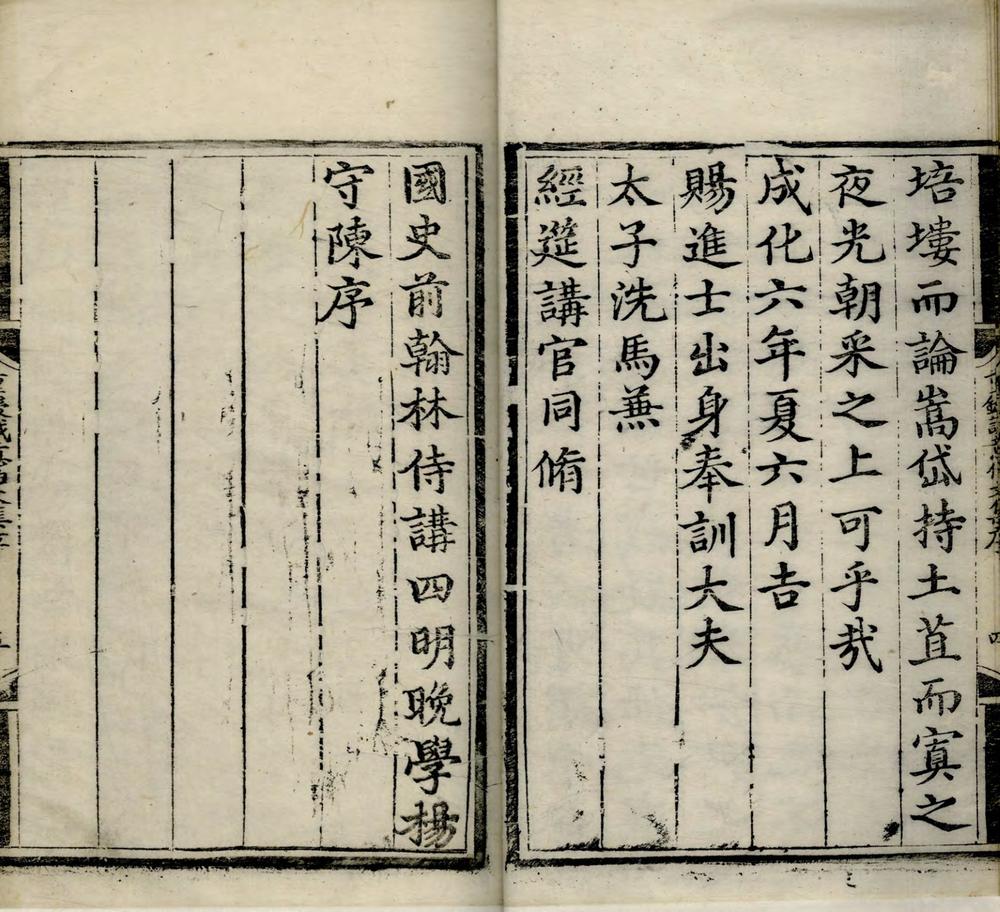 培塿而論嵩岱持土苴而寘之
夜光朝采之上可乎㢤
成化六年夏六月吉
賜進士出身奉訓大夫
太子洗馬蒹
經筵講官同脩
國史前翰林侍講四明晚學揚
守陳序